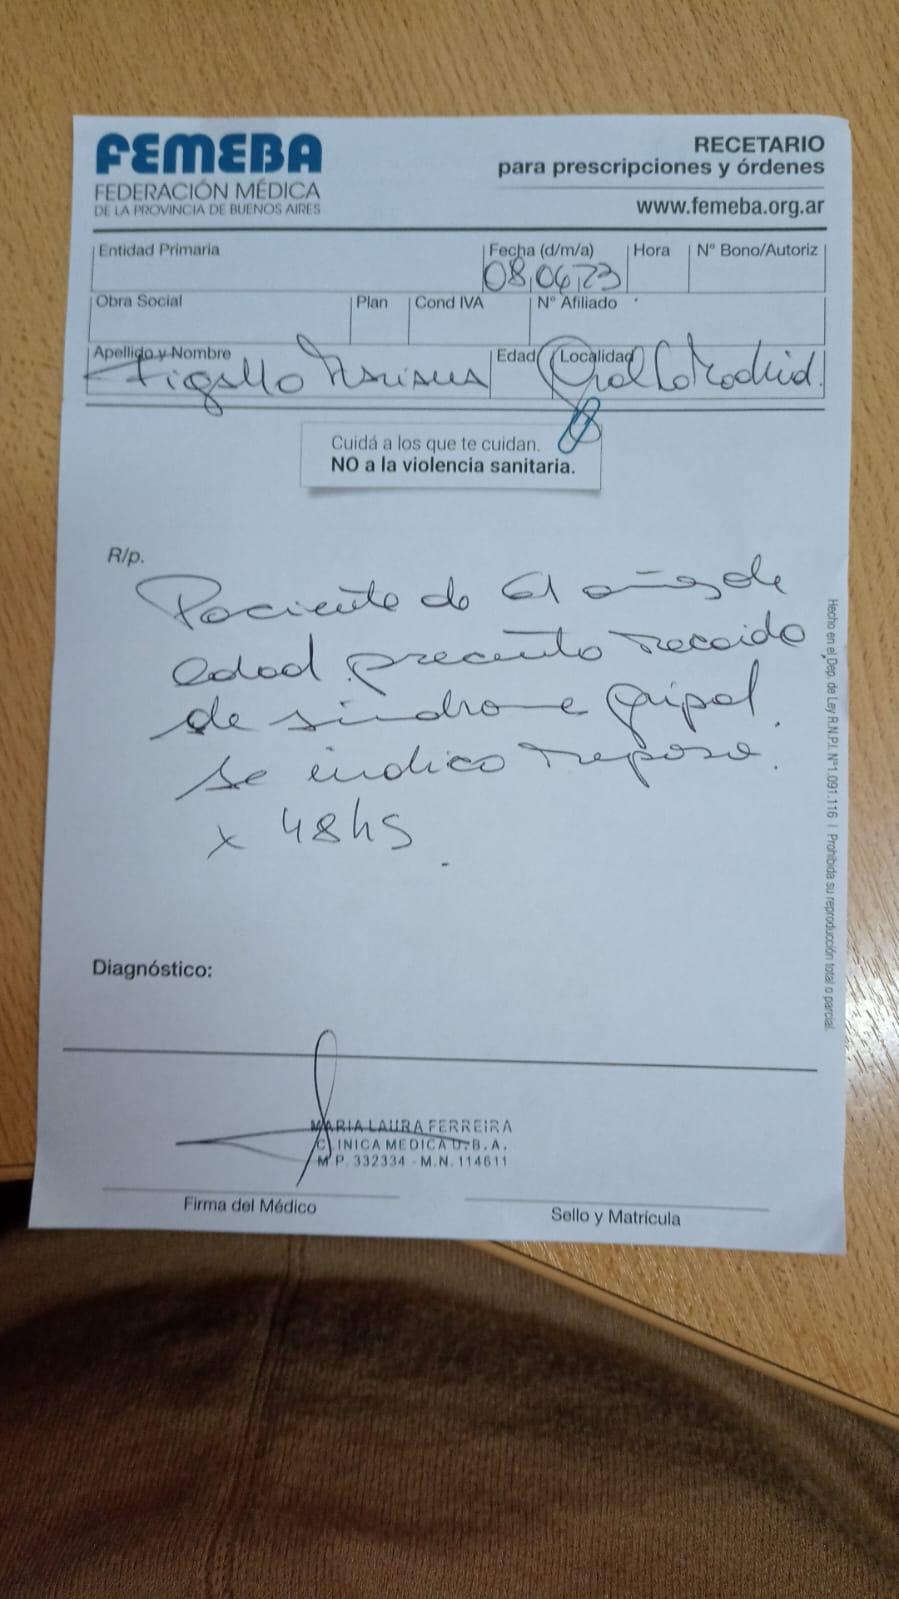 FEMEBA
FEDERACIÓN MÉDICA
DE LA PROVINCIA DE BUENOS AIRES
RECETARIO
para prescripciones y órdenes
www.femeba.org.ar
Entidad Primaria
Fecha (d/m/a)
08,04,23
Hora
Nº Bono/Autoriz
Obra Social
Plan
Cond IVA
Nº Afiliado
Apellido y Nombre
Figallo
Edad
Localidad
Gral La Madrid.
Cuidá a los que te cuidan.
NO a la violencia sanitaria.
R/p.
Paciente de 61 años de
edad presento recaida
de sindrome gripal.
Se indico reposo.
x 48hs.
Hecho en el Dep. de Ley R.N.P.I. Nº1.091.116 | Prohibida su reproducción total o parcial.
Diagnóstico:
MARIA LAURA FERREIRA
CLINICA MEDICA U.B.A.
M.P. 332334 - M.N. 114611
Firma del Médico
Sello y Matrícula